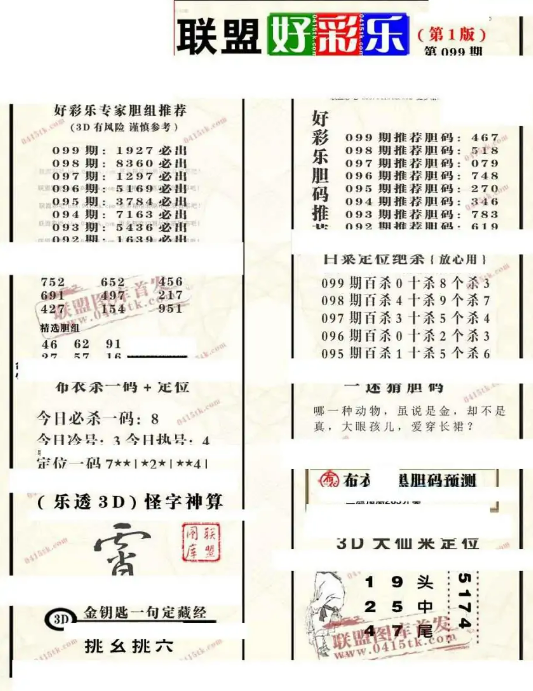 联盟好彩乐
(第1版)
第099期
好彩乐专家胆组推荐
(3D有风险 谨慎参考)
099期: 1927必出
098期: 8360必出
097期: 1297必出
096期: 5169必出
095期: 3784必出
094期: 7163必出
093期: 5436必出
092期: 1639必出
752 652 456
691 497 217
427 154 951
精选胆组
46 62 91
27 57 16
布衣杀一码+定位
今日必杀一码: 8
今日冷号: 3 今日热号: 4
定位一码7**|*2*|**4|
(乐透3D)怪字神算
联盟图库
3D 金钥匙一句定藏经
挑幺挑六
好彩乐胆码推
099期推荐胆码: 467
098期推荐胆码: 518
097期推荐胆码: 079
096期推荐胆码: 748
095期推荐胆码: 270
094期推荐胆码: 346
093期推荐胆码: 783
092期推荐胆码: 619
白菜定位绝杀(放心用)
099期百杀0十杀8个杀3
098期百杀4十杀9个杀7
097期百杀3十杀5个杀4
096期百杀0十杀2个杀3
095期百杀1十杀5个杀6
一迷猜胆码
哪一种动物,虽说是金,却不是
真,大眼孩儿,爱穿长裙?
布衣 胆码预测
3D大仙来定位
1 9 头
2 5 中
4 7 尾
5174
联盟图库首发
www.0415tk.com